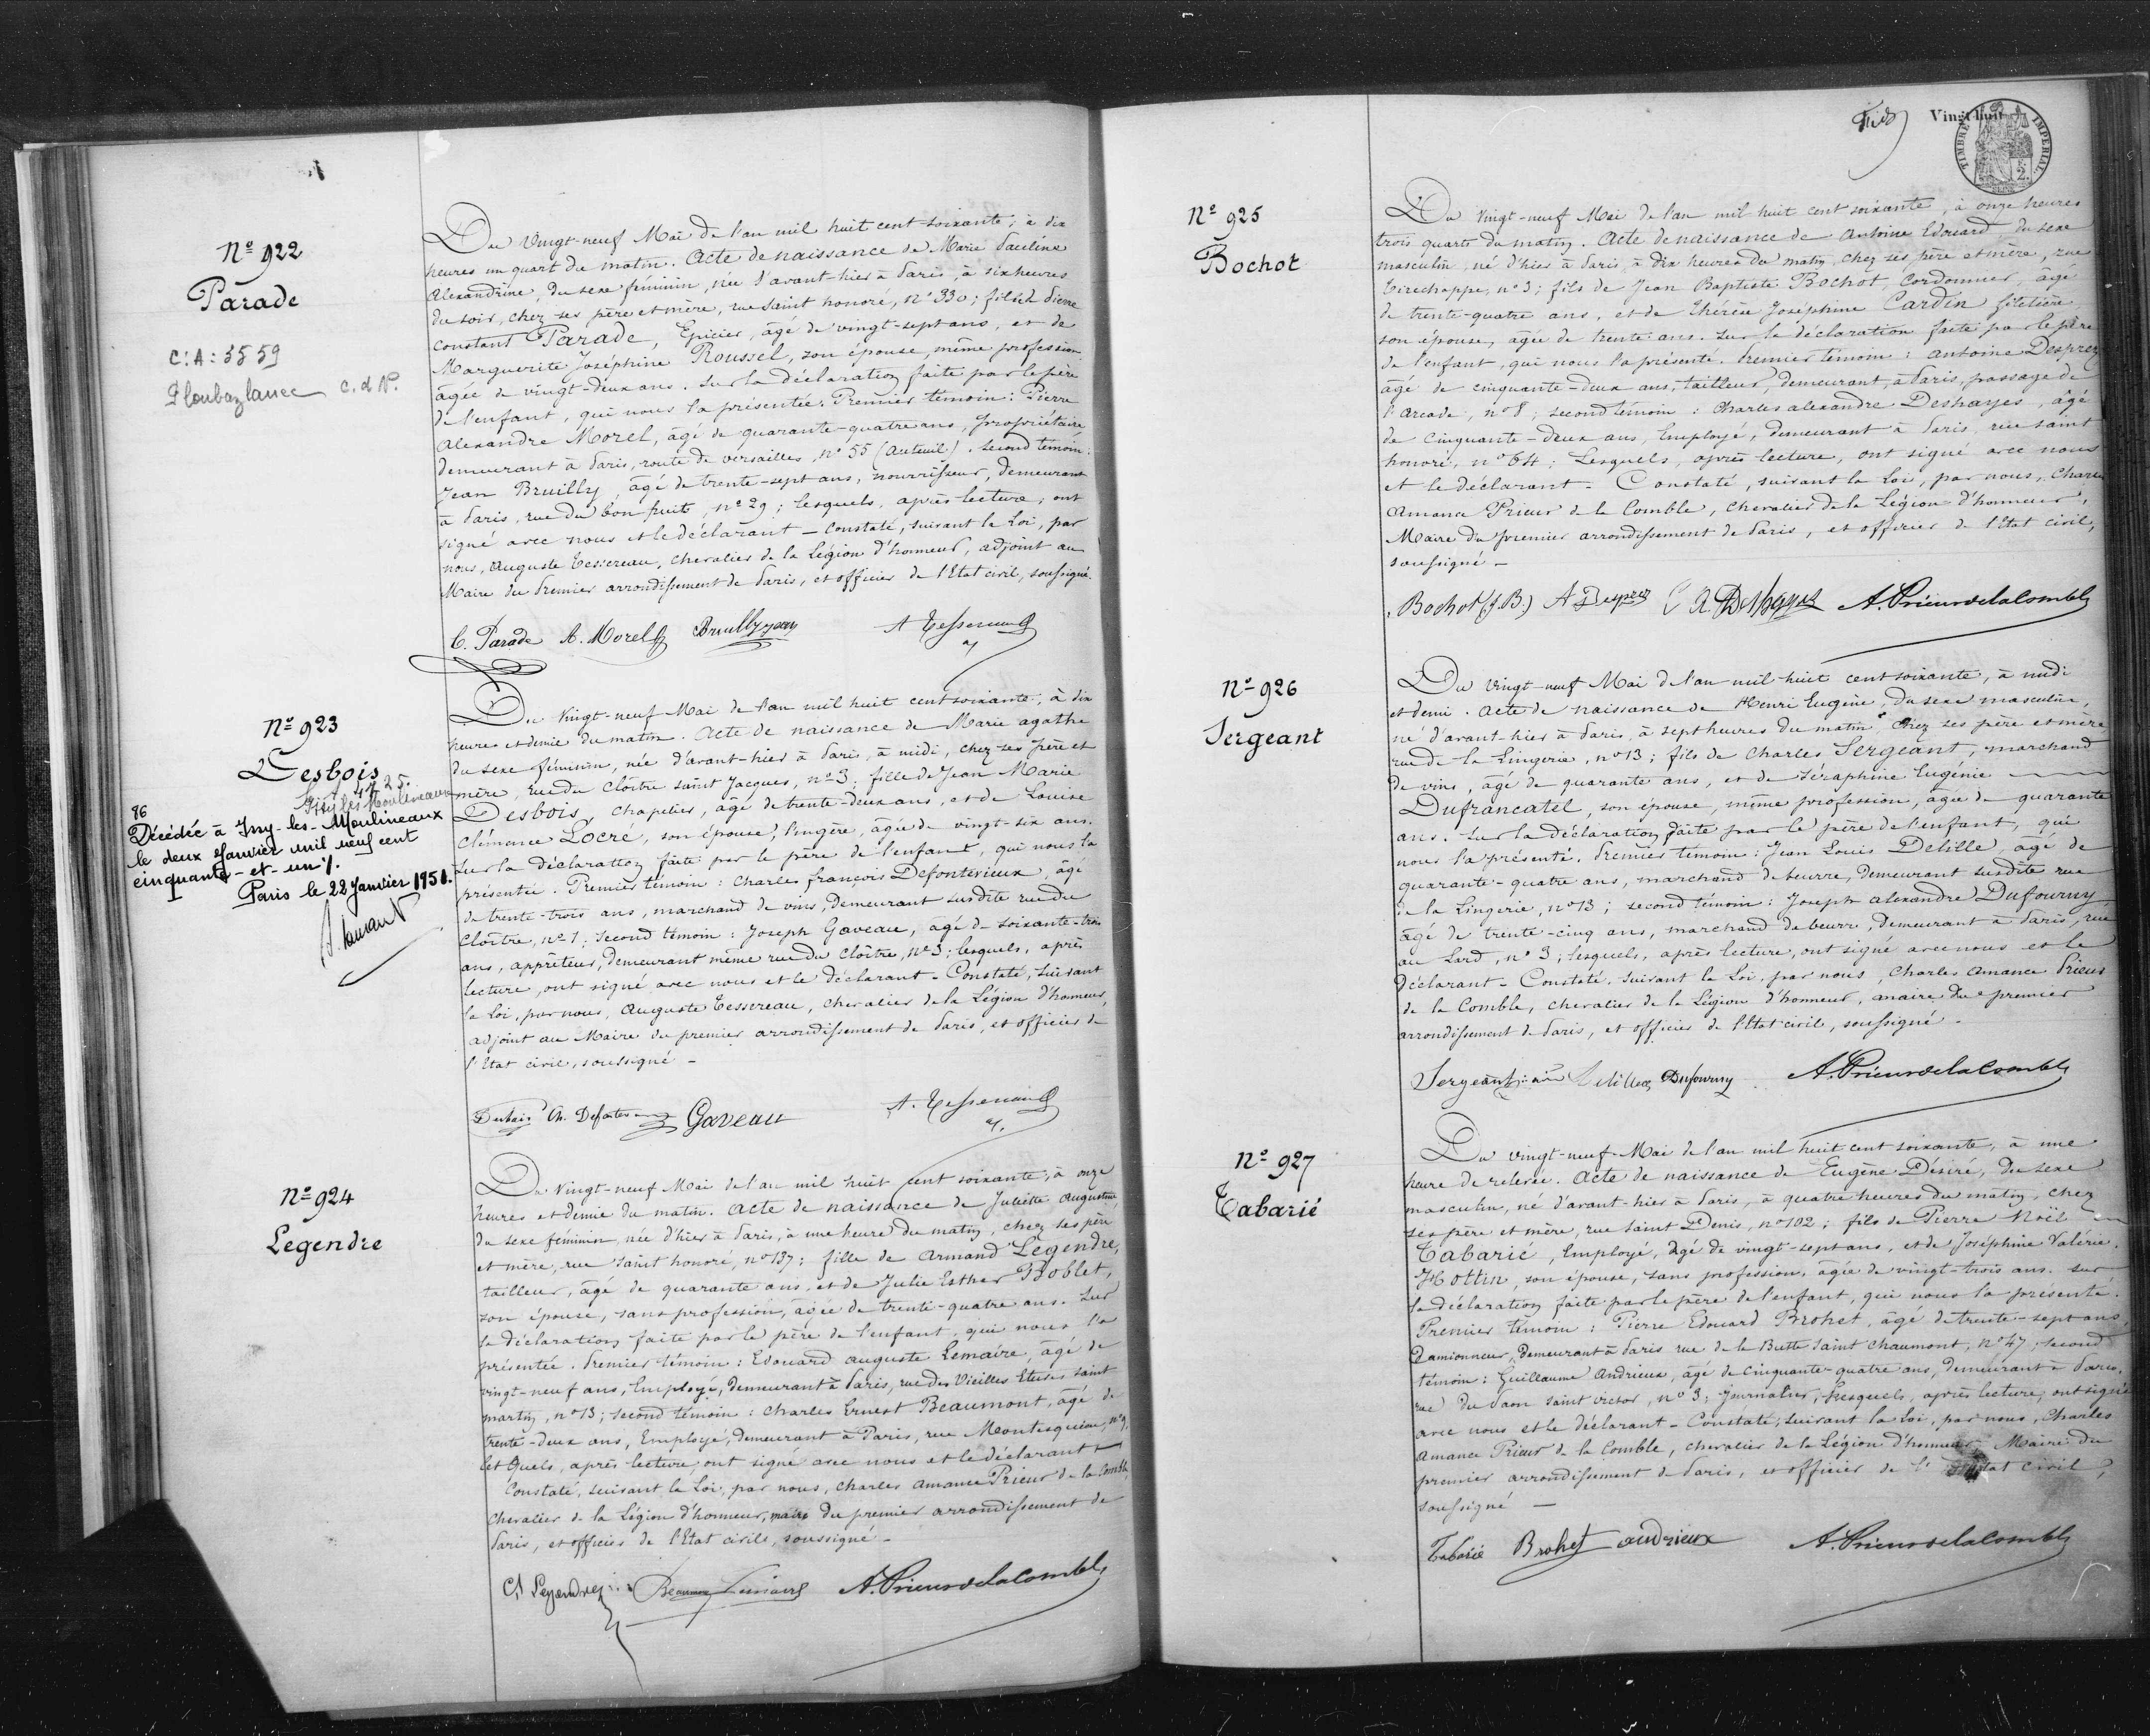 Nº 922
Parade
C.A: 3559
Ploubazlanec C. d N.
Du Vingt-neuf Mai de l'an mil huit cent soixante, à dix
heures un quart du matin. Acte de naissance de Marie Pauline
Alexandrine, du sexe féminin, née d'avant-hier à Paris, à six heures
du soir, chez ses père et mère, rue Saint honoré, nº 330; fille de Pierre
Constant Parade, Epicier, âgé de vingt-sept ans, et de
Marguerite Joséphine Roussel, son épouse, même profession,
âgée de vingt-deux ans. Sur la déclaration faite par le père
de l'enfant, qui nous l'a présentée. Premier témoin: Pierre
Alexandre Morel, âgé de quarante-quatre ans, propriétaire,
demeurant à Paris, route de Versailles, nº 55 (Auteuil). Second témoin:
Jean Bruilly, âgé de trente-sept ans, nourrisseur, demeurant
à Paris, rue du bon puits, nº 29; lesquels, après lecture, ont
signé avec nous et le déclarant - Constaté, suivant la Loi, par
nous, Auguste Tessereau, chevalier de la Légion d'honneur, adjoint au
Maire du Premier arrondissement de Paris, et officier de l'Etat civil, soussigné.
C. Parade A. Morel Bruilly jean A Tessereau
Nº 923
Desbois
Issy les Moulineaux
86
Décédée à Issy-les-Moulineaux
le deux Janvier mil neuf cent
cinquante-et-un /.
Paris le 22 Janvier 1951.
Du Vingt-neuf Mai de l'an mil huit cent soixante, à dix
heures et demie du matin. Acte de naissance de Marie agathe
du sexe féminin, née d'avant-hier à Paris, à midi, chez ses père et
mère, rue du Cloître Saint Jacques, nº 3; fille de Jean Marie
Desbois, chapelier, âgé de trente-deux ans, et de Louise
Clémence Locré, son épouse, lingère, âgée de vingt-six ans.
Sur la déclaration faite par le père de l'enfant, qui nous l'a
présentée. Premier témoin: Charles françois Defontevieux, âgé
de trente-trois ans, marchand de vins, demeurant susdite rue du
Cloître, nº 1; Second témoin: Joseph Gaveau, âgé de soixante-trois
ans, apprêteur, demeurant même rue du Cloître, Nº 3; lesquels, après
lecture, ont signé avec nous et le déclarant - Constaté, suivant
la Loi, par nous, Auguste Tessereau, chevalier de la Légion d'honneur,
adjoint au Maire du premier arrondissement de Paris, et officier de
l'Etat civil, soussigné -
Desbois Ch. Defontevieux Gaveau A. Tessereau
Nº 924
Legendre
Du Vingt-neuf Mai de l'an mil huit cent soixante, à onze
heures et demie du matin. Acte de naissance de Juliette Augustine
du sexe féminin, née d'hier à Paris, à une heure du matin, chez ses père
et mère, rue Saint honoré, nº 137; fille de Armand Legendre,
tailleur, âgé de quarante ans, et de Julie Esther Boblet,
son épouse, sans profession, âgée de trente-quatre ans. Sur
la déclaration faite par le père de l'enfant, qui nous l'a
présentée. Premier témoin: Edouard auguste Lemaire, âgé de
vingt-neuf ans, Employé, demeurant à Paris, rue des Vieilles Etuves Saint
martin, nº 13; second témoin: Charles Ernest Beaumont, âgé de
trente-deux ans, Employé, demeurant à Paris, rue Montesquieu, nº 9.
Lesquels, après lecture, ont signé avec nous et le déclarant -
Constaté, suivant la Loi, par nous, Charles Amance Prieur de la Comble,
chevalier de la Légion d'honneur, maire du premier arrondissement de
Paris, et officier de l'Etat civil, soussigné -
A Legendre Beaumont Lemaire A. Prieur de la Comble
Vingt huit
TIMBRE IMPERIAL
2.
SEINE
Nº 925
Bochot
Du Vingt-neuf Mai de l'an mil huit cent soixante, à onze heures
trois quarts du matin. Acte de naissance de Antoine Edouard du sexe
masculin, né d'hier à Paris, à dix heures du matin, chez ses père et mère, rue
Tirechappe, nº 3; fils de Jean Baptiste Bochot, Cordonnier, âgé
de trente-quatre ans, et de Thérèse Joséphine Cardin giletière,
son épouse, âgée de trente ans. Sur la déclaration faite par le père
de l'enfant, qui nous l'a présenté. Premier témoin: Antoine Desprez
âgé de cinquante-deux ans, tailleur, demeurant à Paris, passage de
l'arcade, nº 8; second témoin: Charles alexandre Deshayes, âgé
de cinquante-deux ans, Employé, demeurant à Paris, rue Saint
honoré, nº 64; Lesquels, après lecture, ont signé avec nous
et le déclarant - Constaté, suivant la Loi, par nous, Charles
Amance Prieur de la Comble, chevalier de la Légion d'honneur,
Maire du premier arrondissement de Paris, et officier de l'Etat civil,
soussigné -
Bochot (J.B.) A Desprez C A. Deshayes A. Prieur de la Comble
Nº 926
Sergeant
Du Vingt-neuf Mai de l'an mil huit cent soixante, à midi
et demi. Acte de naissance de Henri Eugène, du sexe masculin,
né d'avant-hier à Paris, à sept heures du matin, chez ses père et mère
rue de la Lingerie, nº 13; fils de Charles Sergeant, marchand
de vins, âgé de quarante ans, et de Séraphine Eugénie
Dufrancatel, son épouse, même profession, âgée de quarante
ans. Sur la déclaration faite par le père de l'enfant, qui
nous l'a présenté. Premier témoin: Jean Louis Delille, âgé de
quarante-quatre ans, marchand de beurre, demeurant susdite rue
de la Lingerie, nº 13; second témoin: Joseph alexandre Dufourny
âgé de trente-cinq ans, marchand de beurre, demeurant à Paris, rue
au Lard, nº 3; lesquels, après lecture, ont signé avec nous et le
déclarant - Constaté, suivant la Loi, par nous, Charles Amance Prieur
de la Comble, chevalier de la Légion d'honneur, maire du premier
arrondissement de Paris, et officier de l'Etat civil, soussigné -
Sergeant Delille Dufourny A. Prieur de la Comble
Nº 927
Tabarié
Du vingt-neuf Mai de l'an mil huit cent soixante, à une
heure de relevée. Acte de naissance de Eugène Désiré, du sexe
masculin, né d'avant-hier à Paris, à quatre heures du matin, chez
ses père et mère, rue Saint Denis, nº 102; fils de Pierre Noël
Tabarié, Employé, âgé de vingt-sept ans, et de Joséphine Valérie
Hottin, son épouse, sans profession, âgée de vingt-trois ans. Sur
la déclaration faite par le père de l'enfant, qui nous l'a présenté.
Premier témoin: Pierre Edouard Brohet, âgé de trente-sept ans,
Camionneur, demeurant à Paris rue de la Butte Saint Chaumont, nº 47; second
témoin: Guillaume Andrieux, âgé de cinquante-quatre ans, demeurant à Paris,
rue du Paon Saint victor, nº 3, Journalier; lesquels, après lecture, ont signé
avec nous et le déclarant - Constaté, suivant la Loi, par nous, Charles
Amance Prieur de la Comble, chevalier de la Légion d'honneur, Maire du
premier arrondissement de Paris, et officier de l'Etat civil,
soussigné -
Tabarié Brohet andrieux A. Prieur de la Comble